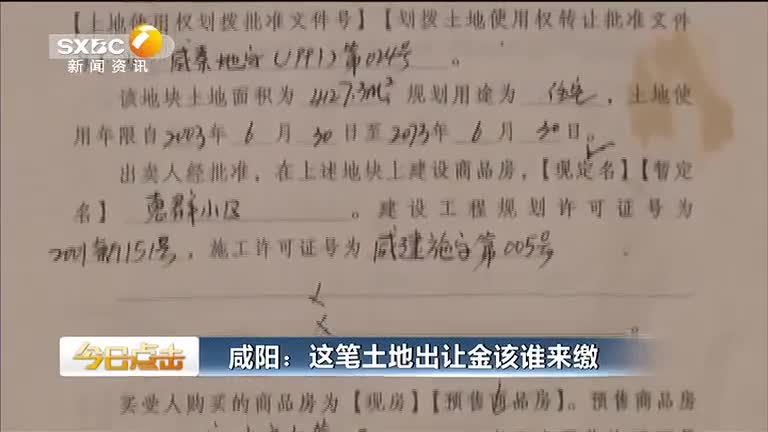 【土地使用权划拨批准文件号】【划拨土地使用权转让批准文件
SXBC
新闻资讯
咸秦地字(1991)第024号。
该地块土地面积为 4127.3m² 规划用途为 住宅,土地使
用年限自2003年 6 月 30 日至2073年 6 月 30日。
出卖人经批准,在上述地块上建设商品房,【现定名】【暂定
名】惠群小区。建设工程规划许可证号为
2001年第1151号,施工许可证号为 咸建施字第005号
。
今日点击
咸阳:这笔土地出让金该谁来缴
买受人购买的商品房为【现房】【预售商品房】。预售商品房